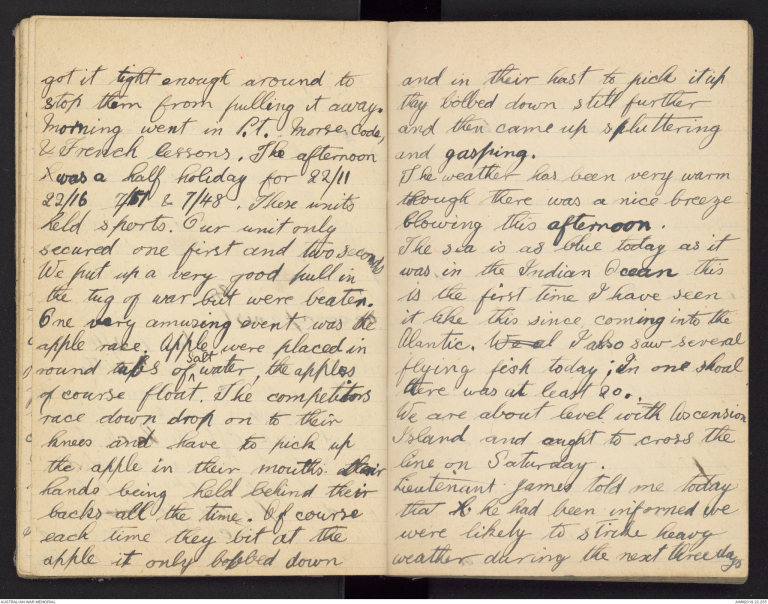 got it tight enough around to
stop them from pulling it away.
Morning went in P.t. Morse Code,
& French lessons. The afternoon
x was a half holiday for 22/11
22/16 7/51 & 7/48. These units
held sports. Our unit only
secured one first and two seconds
We put up a very good pull in
the tug of war but were beaten.
One very amusing event was the
apple race. Apple were placed in
round tubs of salt water, the apples
of course float. The competitors
race down drop on to their
knees and have to pick up
the apple in their mouths their
hands being held behind their
backs all the time. Of course
each time they bit at the
apple it only bobbed down
and in their hast to pick it up
they bobbed down still further
and then came up spluttering
and gasping.
The weather has been very warm
though there was a nice breeze
blowing this afternoon.
The sea is as blue today as it
was in the Indian Ocean this
is the first time I have seen
it like this since coming into the
Alantic. I also saw several
flying fish today; In one shoal
there was at least 20.
We are about level with Ascension
Island and aught to cross the
line on Saturday.
Lieutenant James told me today
that he had been informed we
were likely to strike heavy
weather during the next three days
AUSTRALIAN WAR MEMORIAL